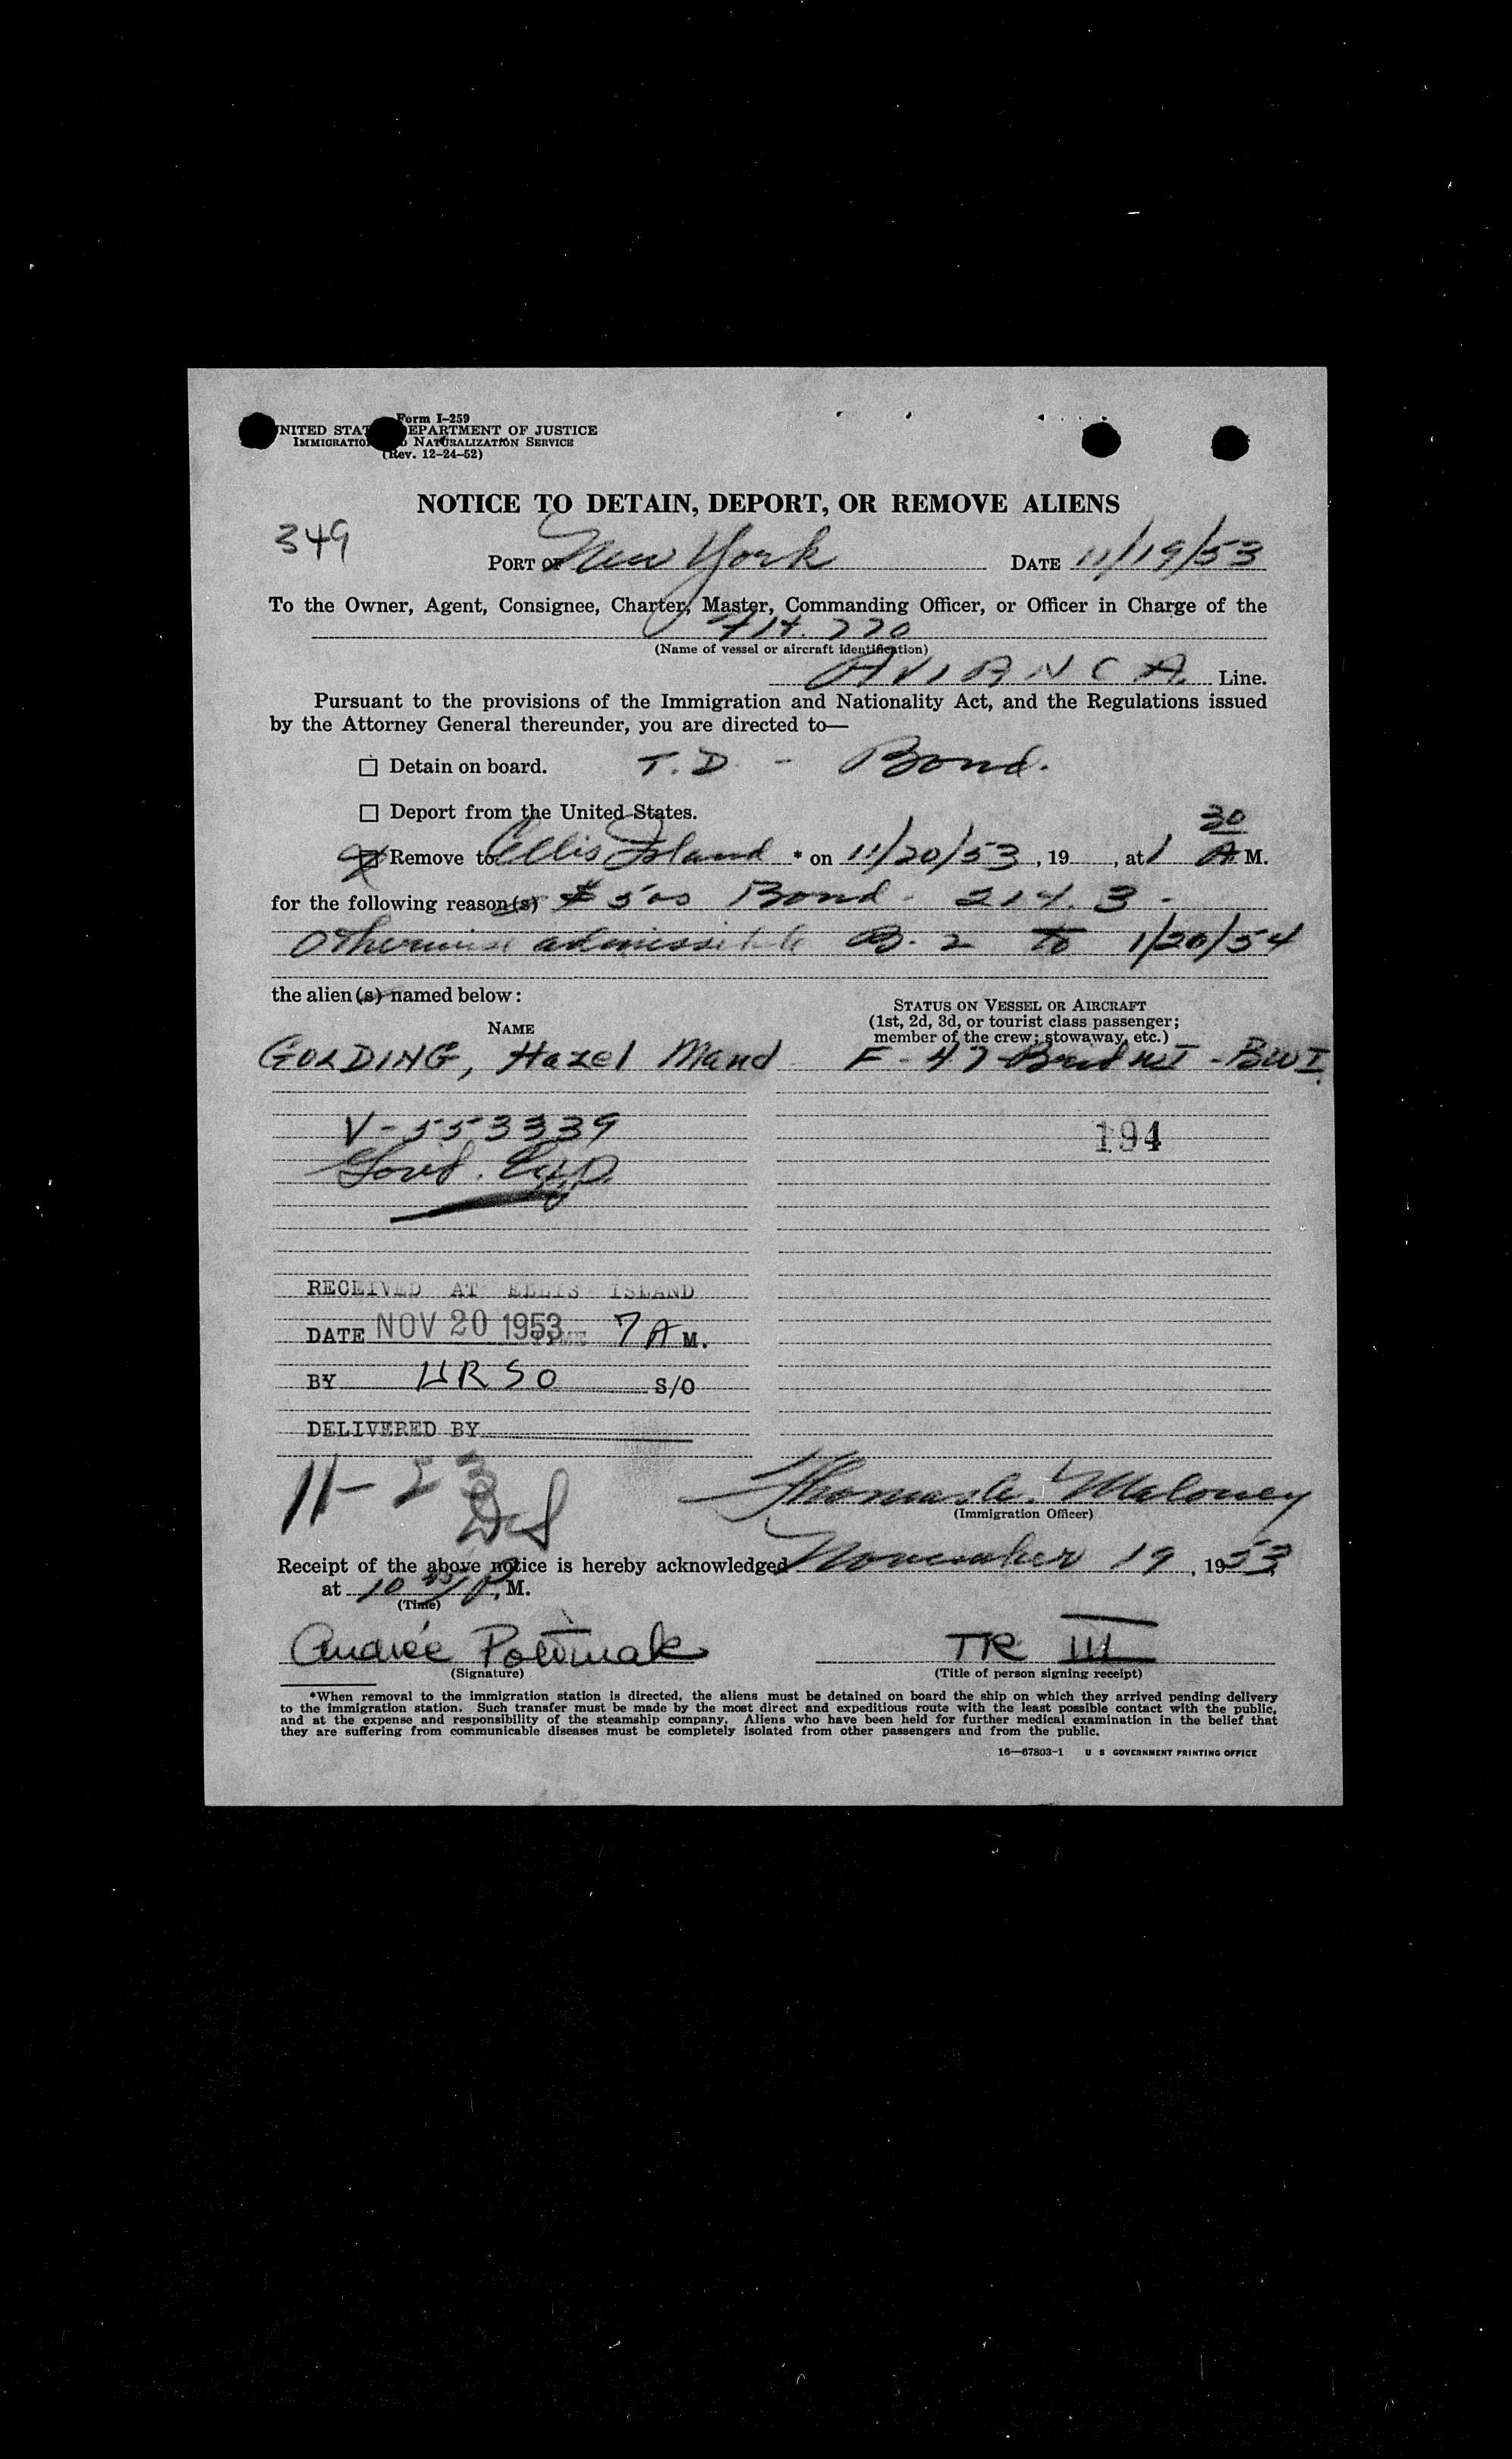 Form I-259
UNITED STATES DEPARTMENT OF JUSTICE
IMMIGRATION AND NATURALIZATION SERVICE
(Rev. 12-24-52)
NOTICE TO DETAIN, DEPORT, OR REMOVE ALIENS
349
PORT OF New York DATE 11/19/53
To the Owner, Agent, Consignee, Charter, Master, Commanding Officer, or Officer in Charge of the
Flt. 770
(Name of vessel or aircraft identification)
AVIANCA Line.
Pursuant to the provisions of the Immigration and Nationality Act, and the Regulations issued
by the Attorney General thereunder, you are directed to—
☐ Detain on board. T.D. - Bond.
☐ Deport from the United States.
Remove to Ellis Island * on 11/20/53, 19 , at 1 30 A M.
for the following reason(s) $500 Bond - 214.3 -
Otherwise admissible B-2 to 1/20/54
the alien(s) named below:
NAME
STATUS ON VESSEL OR AIRCRAFT
(1st, 2d, 3d, or tourist class passenger;
member of the crew; stowaway, etc.)
GOLDING, Hazel Maud F-47- BWI
V-553339
194
RECEIVED AT ELLIS ISLAND
DATE NOV 20 1953 TIME 7 A M.
BY URSO S/O
DELIVERED BY
11-23
Thomas A. Maloney
(Immigration Officer)
Receipt of the above notice is hereby acknowledged November 19, 1953
at 10 P. M.
(Time)
Andrée TR III
(Signature) (Title of person signing receipt)
*When removal to the immigration station is directed, the aliens must be detained on board the ship on which they arrived pending delivery
to the immigration station. Such transfer must be made by the most direct and expeditious route with the least possible contact with the public,
and at the expense and responsibility of the steamship company. Aliens who have been held for further medical examination in the belief that
they are suffering from communicable diseases must be completely isolated from other passengers and from the public.
16—67803-1 U S GOVERNMENT PRINTING OFFICE